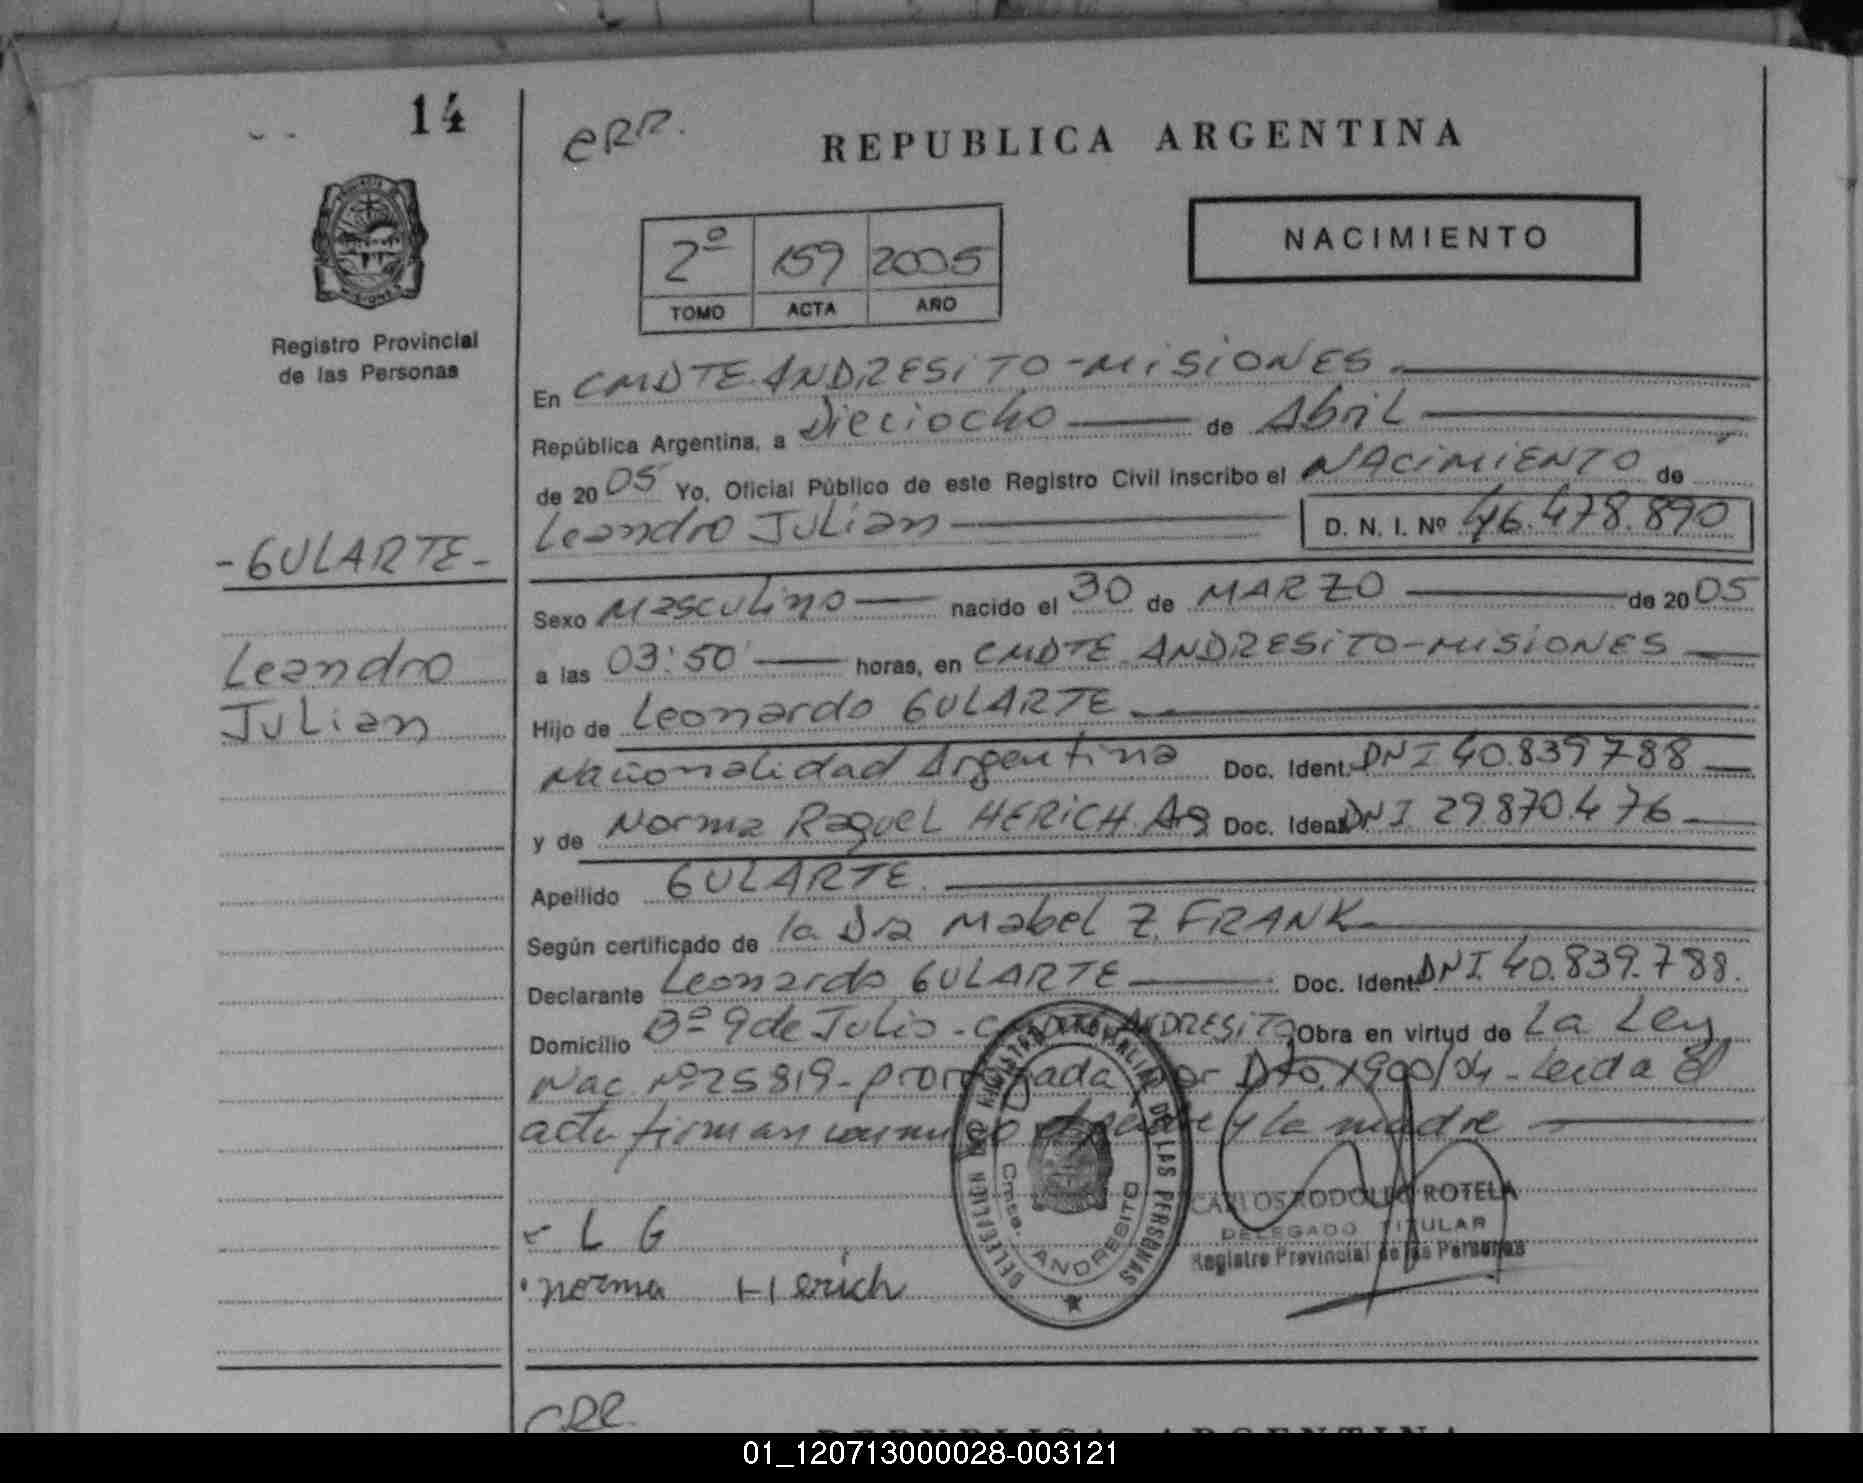 14
ERR.
REPUBLICA ARGENTINA
NACIMIENTO
2º 159 2005
TOMO ACTA AÑO
Registro Provincial
de las Personas
En CMDTE. ANDRESITO - MISIONES
República Argentina, a Dieciocho de Abril
de 2005 Yo, Oficial Público de este Registro Civil inscribo el NACIMIENTO de
Leandro Julian D. N. I. Nº 46.478.890
- GULARTE -
Leandro
Julian
Sexo Masculino nacido el 30 de MARZO de 2005
a las 03:50 horas, en CMDTE ANDRESITO - MISIONES
Hijo de Leonardo GULARTE
Nacionalidad Argentina Doc. Ident. DNI 40.839788
y de Norma Raquel HERICH Arg Doc. Ident. DNI 29.870.476
Apellido GULARTE
Según certificado de la Dra Mabel Z. FRANK
Declarante Leonardo GULARTE Doc. Ident. DNI. 40.839.788.
Domicilio Bº 9 de Julio - CMDTE ANDRESITO Obra en virtud de La Ley
Nac. Nº 25819 - prorrogada por Dto. 1900/04 - Leida el
acta firman conmigo el padre y la madre
DELEGACION DEL REGISTRO PROVINCIAL DE LAS PERSONAS
Cmte. ANDRESITO
CARLOS RODOLFO ROTELA
DELEGADO TITULAR
Registro Provincial de las Personas
L G
norma Herich
REPUBLICA ARGENTINA
01_120713000028-003121